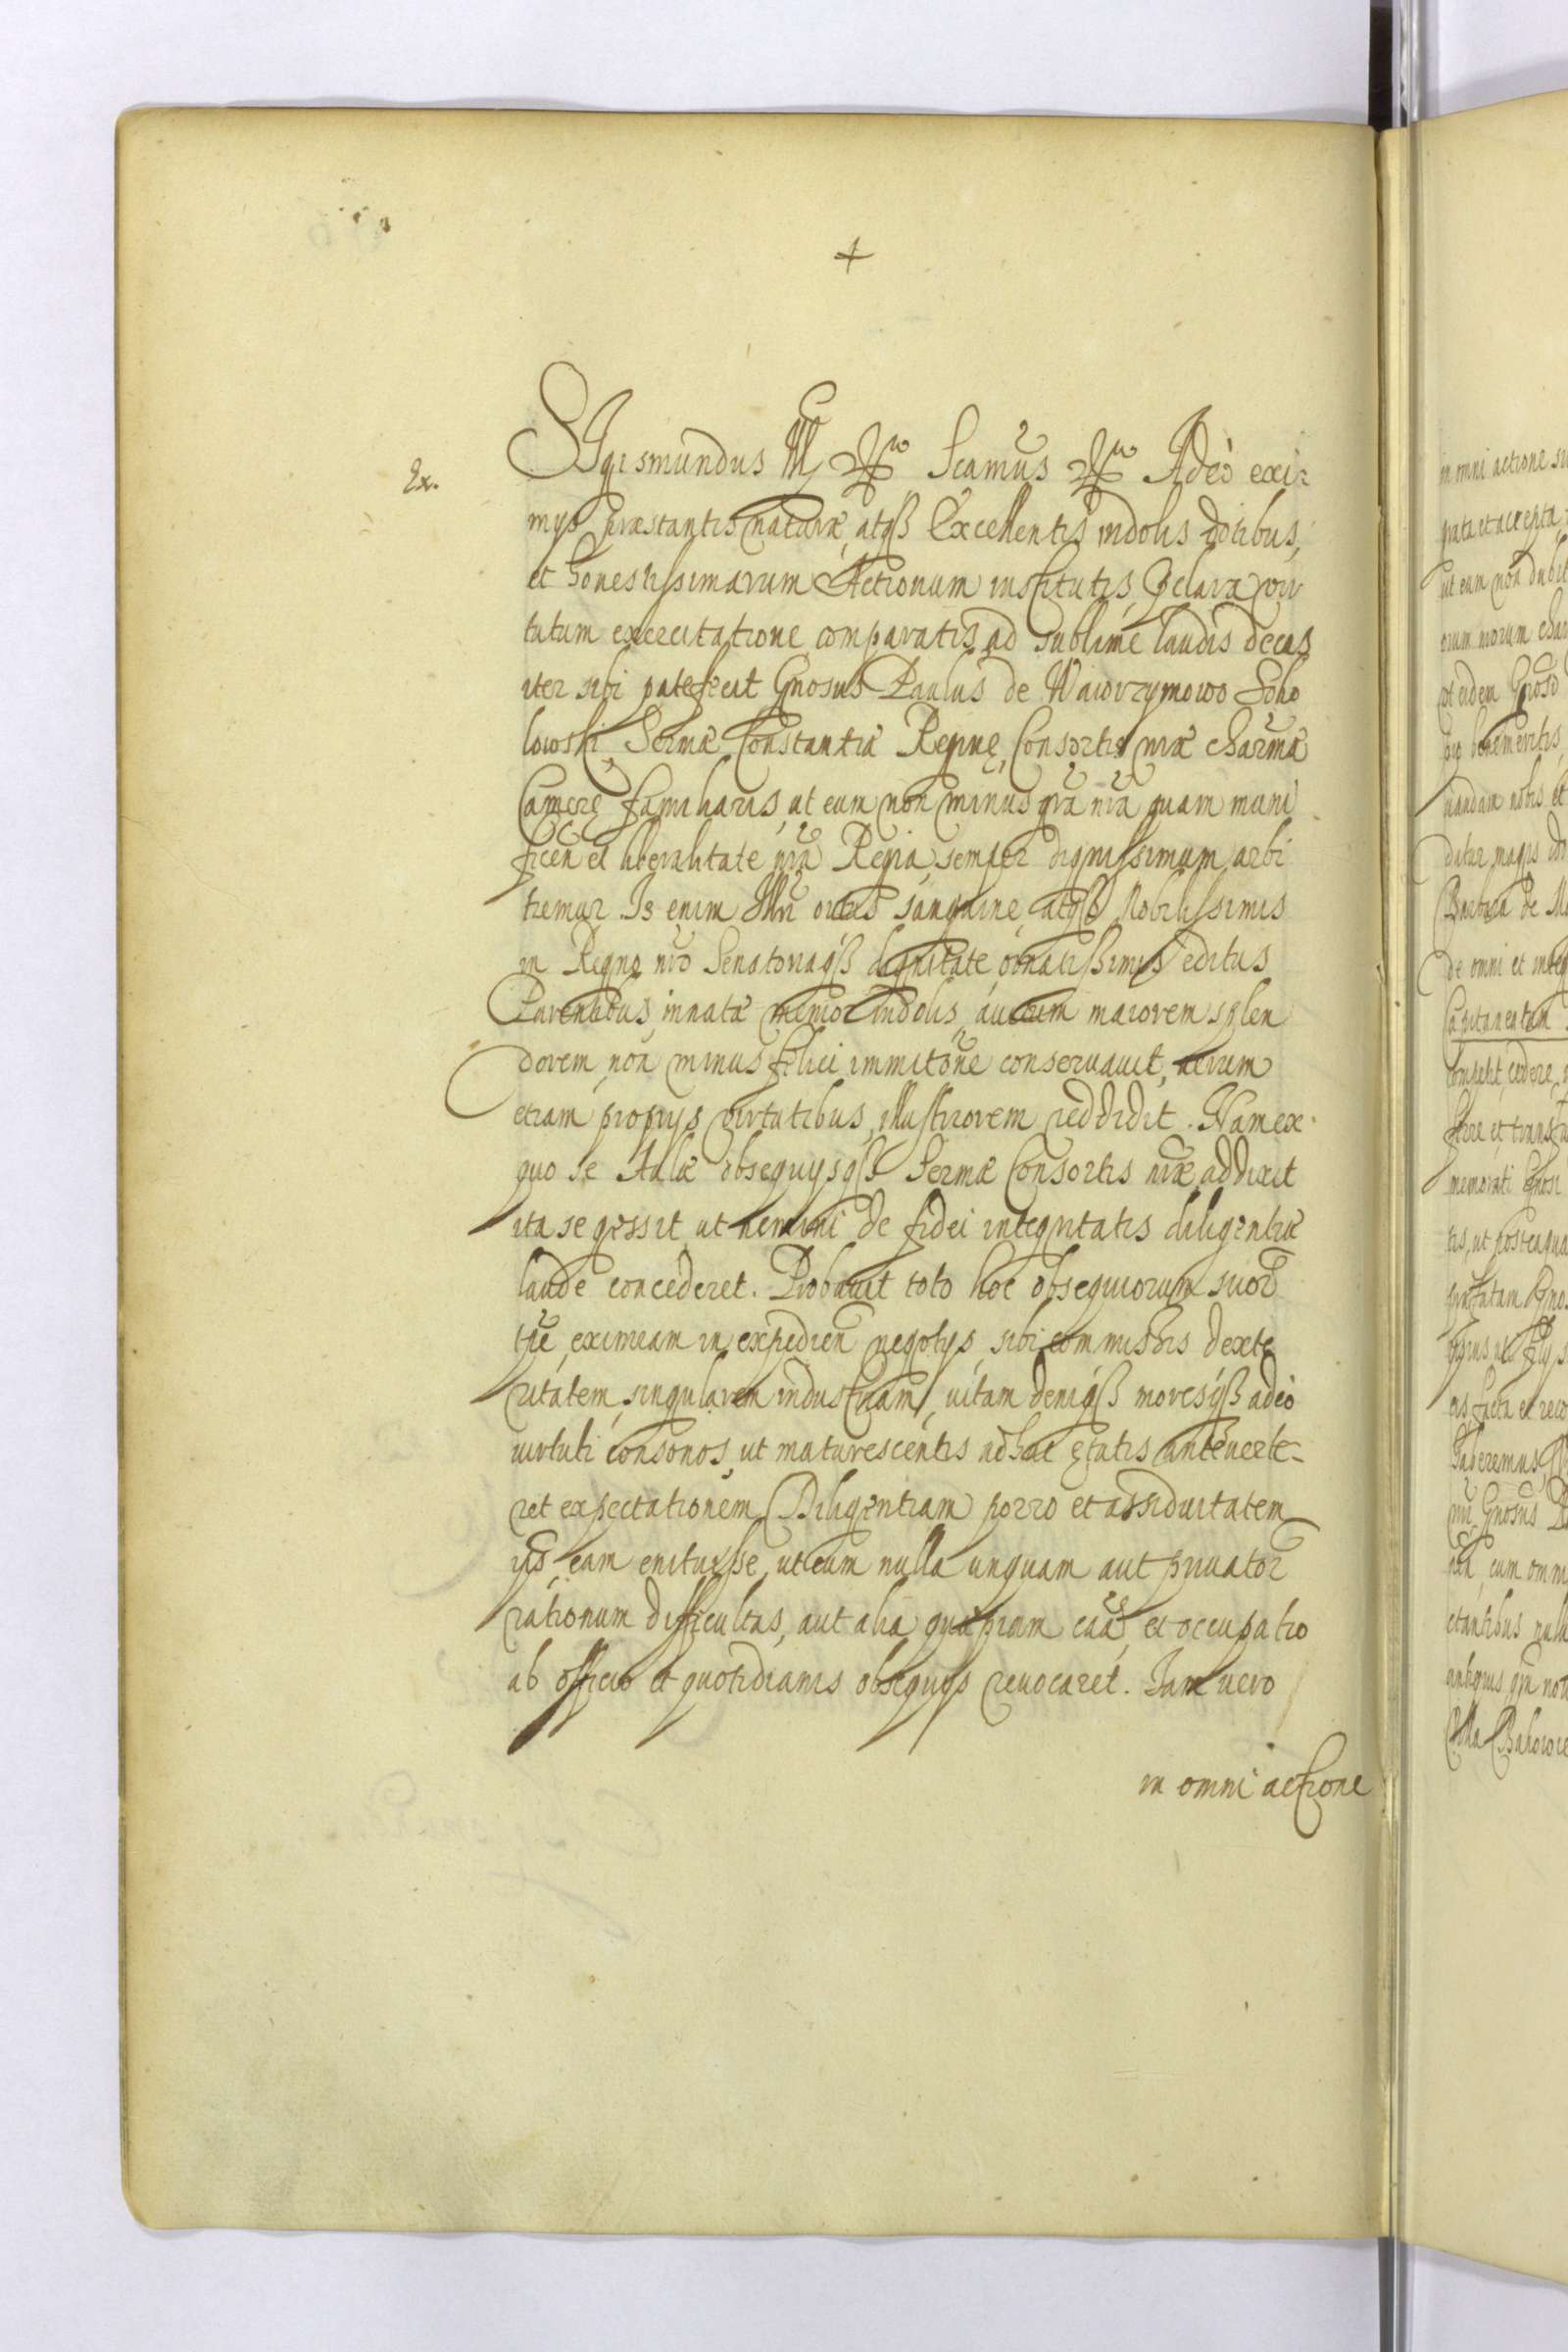 +
Ex.
Sigismundus III etc Scamus etc Adeò exi-
mys præstantis naturæ, atqß Excellentis indolis dotibus,
et honestissimarum Actionum institutis, pclara vir
tutum exercitatione comparatis ad sublime laudis decus
iter sibi patefecit Gnosus Paulus de Waiovrzymowo Soko
lowski, Sermæ Constantiæ Reginę, Consortis nræ charmæ
Camerę familiaris, ut eum non minus gra nra quam muni
ficen et liberalitate nra Regia semper dignissimum arbi
tremur. Is enim Illri ortus sanguine, atqß Nobilissimis
in Regno nro Senatoriaqß dignitate ornatissimis editus
Parentibus, innatæ memor indolis auitum maiorem splen
dorem, non minus felici immitone conseruauit, uerum
etiam proprys virtutibus illustriorem reddidit. Nam ex
quo se Aulæ obsequysqß Sermæ Consortis nræ addixit
ita se gessit ut nemini de fidei integritatis diligentiæ
laude concederet. Probauit toto hoc obsequiorum suor
tpe eximeam in expedien negotys sibi commissis dexte
ritatem, singularem industriam, uitam deniqß moresqß adeò
virtuti consonos, ut maturescentis adhuc ętatis anteuerte-
ret expectationem. Diligentiam porro et assiduitatem
ys eam enituisse, ut eum nulla unquam aut priuator
rationum difficultas, aut alia quæpiam caã, et occupatio
ab officio et quotidianis obsequys reuocaret. Iam uero
in omni actione
in omni actione su
grata et accepta
ut eum non dubit
orum morum char
ot eidem Gnoso
bene meritis
nandam nobis et
ditur magis
Barbara de
de omni et integ
Capitaneatum
competit cedere,
memorati Gnosi
tis, ut posteaqua
ors facta et reco
haberemus,
nri Gnosus
cum omni
Villa Bakowie